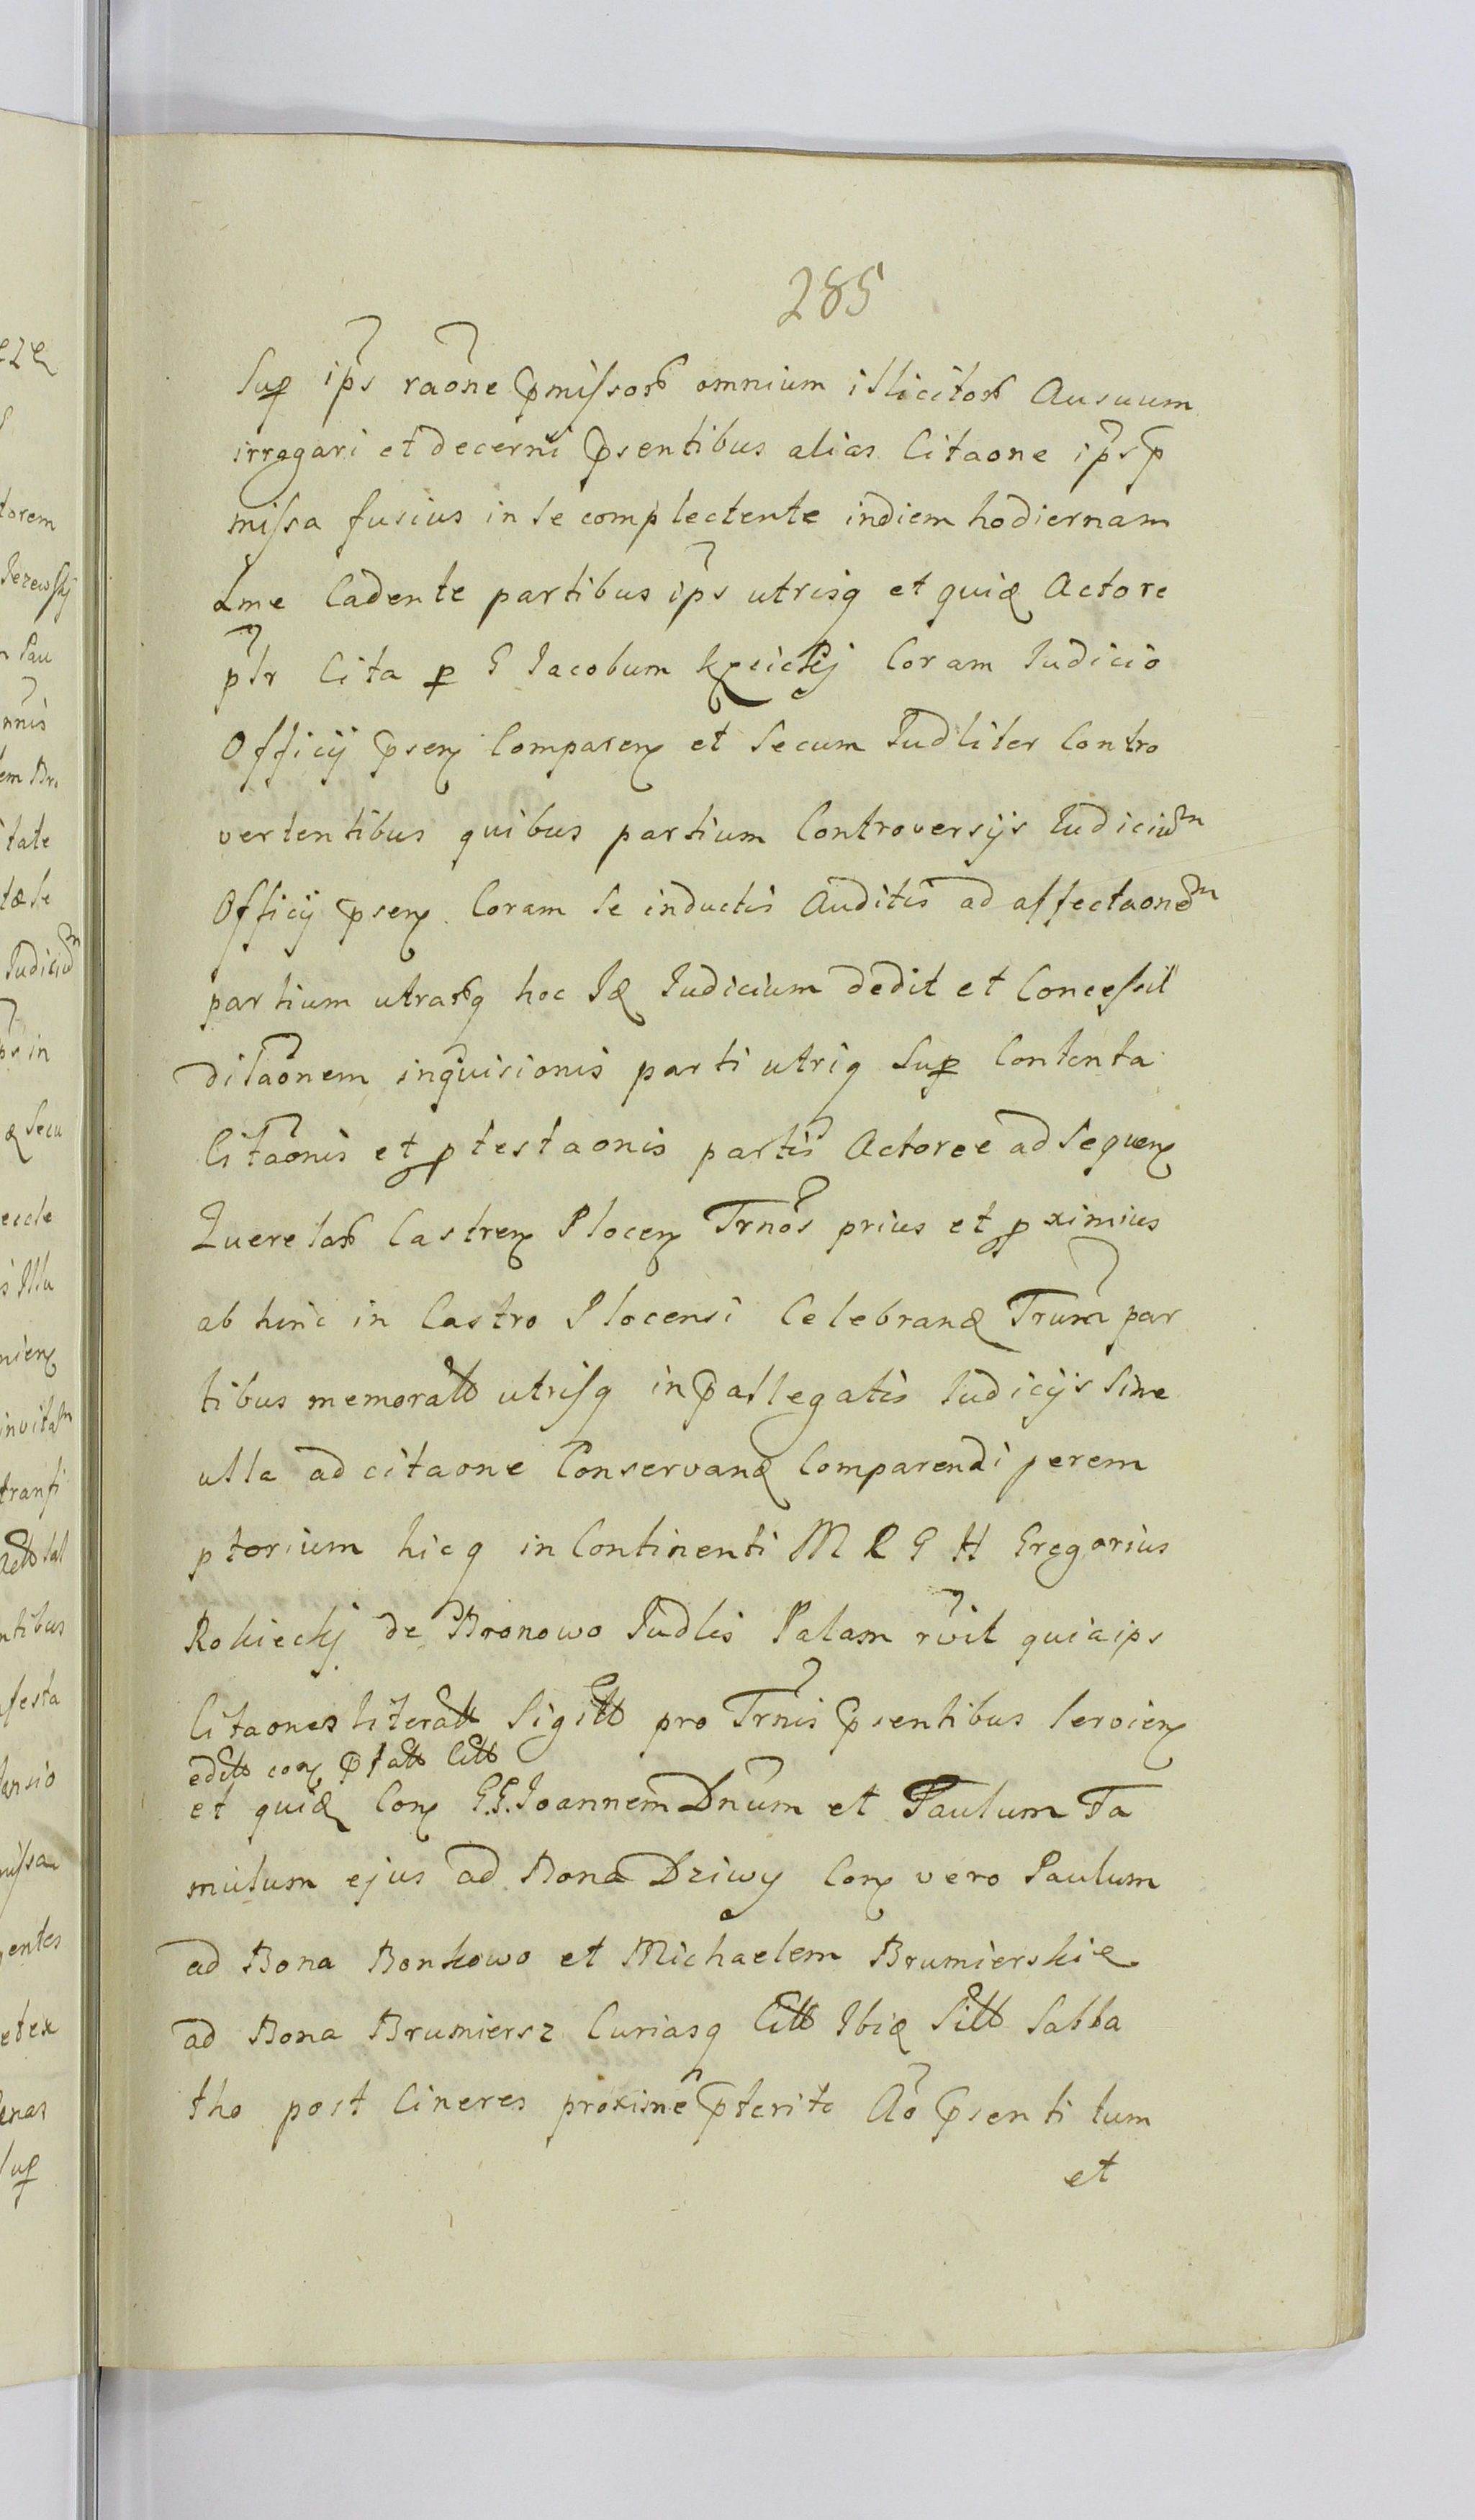 285
Sup ips raone pmissor omnium illicitor Ausuum
irrogari et decerni psentibus alias Citaone ips p
missa fusius in se complectente in diem hodiernam
Lme Cadente partibus ips utrisq et quid Actore
plr Cita p G Iacobum Coram Iudicio
Officij psen Comparen et Secum Iudliter Contro
vertentibus quibus partium Controversijs Iudicium
Officij psen Coram Se inductis Auditis ad affectaonem
partium utrarq hoc Id Iudicium dedit et Concessit
dilaonem inquisionis parti utriq Sup Contenta
Citaonis et ptestaonis partis Actoree ad Sequen
Querelar Castren Plocen Trnos prius et pximius
ab hinc in Castro Plocensi Celebrand Trum par
tibus memoratt utrisq in pallegatis Iudicijs Sine
ulla ad citaone Conservand Comparendi perem
ptorium hicq in Continenti M R G H Gregorius
Rokieckj de Bronowo Iudlis Palam rvit quia ips
Citaones literatt Sigitt pro Trnis psentibus Servien
editt con ptatt Citt
et quid Con G.G. Ioannem Dnum et Paulum Fa
mulum ejus ad Bona Dziwy Con vero Paulum
ad Bona Bonkowo et Michaelem Brumierskie
ad Bona Brumiersz Curiasq Citt Ibid Sitt Sabba
tho post Cineres proxime pterito Ao psenti tum
et